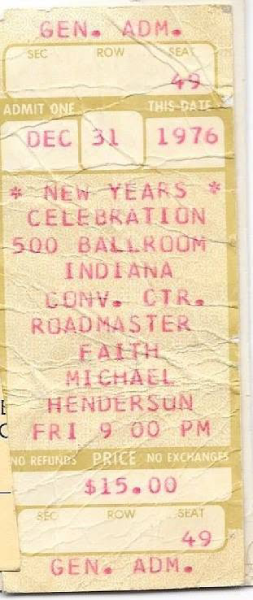 GEN. ADM.
SEC ROW SEAT
49
ADMIT ONE THIS DATE
DEC 31 1976
* NEW YEARS *
CELEBRATION
500 BALLROOM
INDIANA
CONV. CTR.
ROADMASTER
FAITH
MICHAEL
HENDERSON
FRI 9 00 PM
NO REFUNDS PRICE NO EXCHANGES
$15.00
SEC ROW SEAT
49
GEN. ADM.